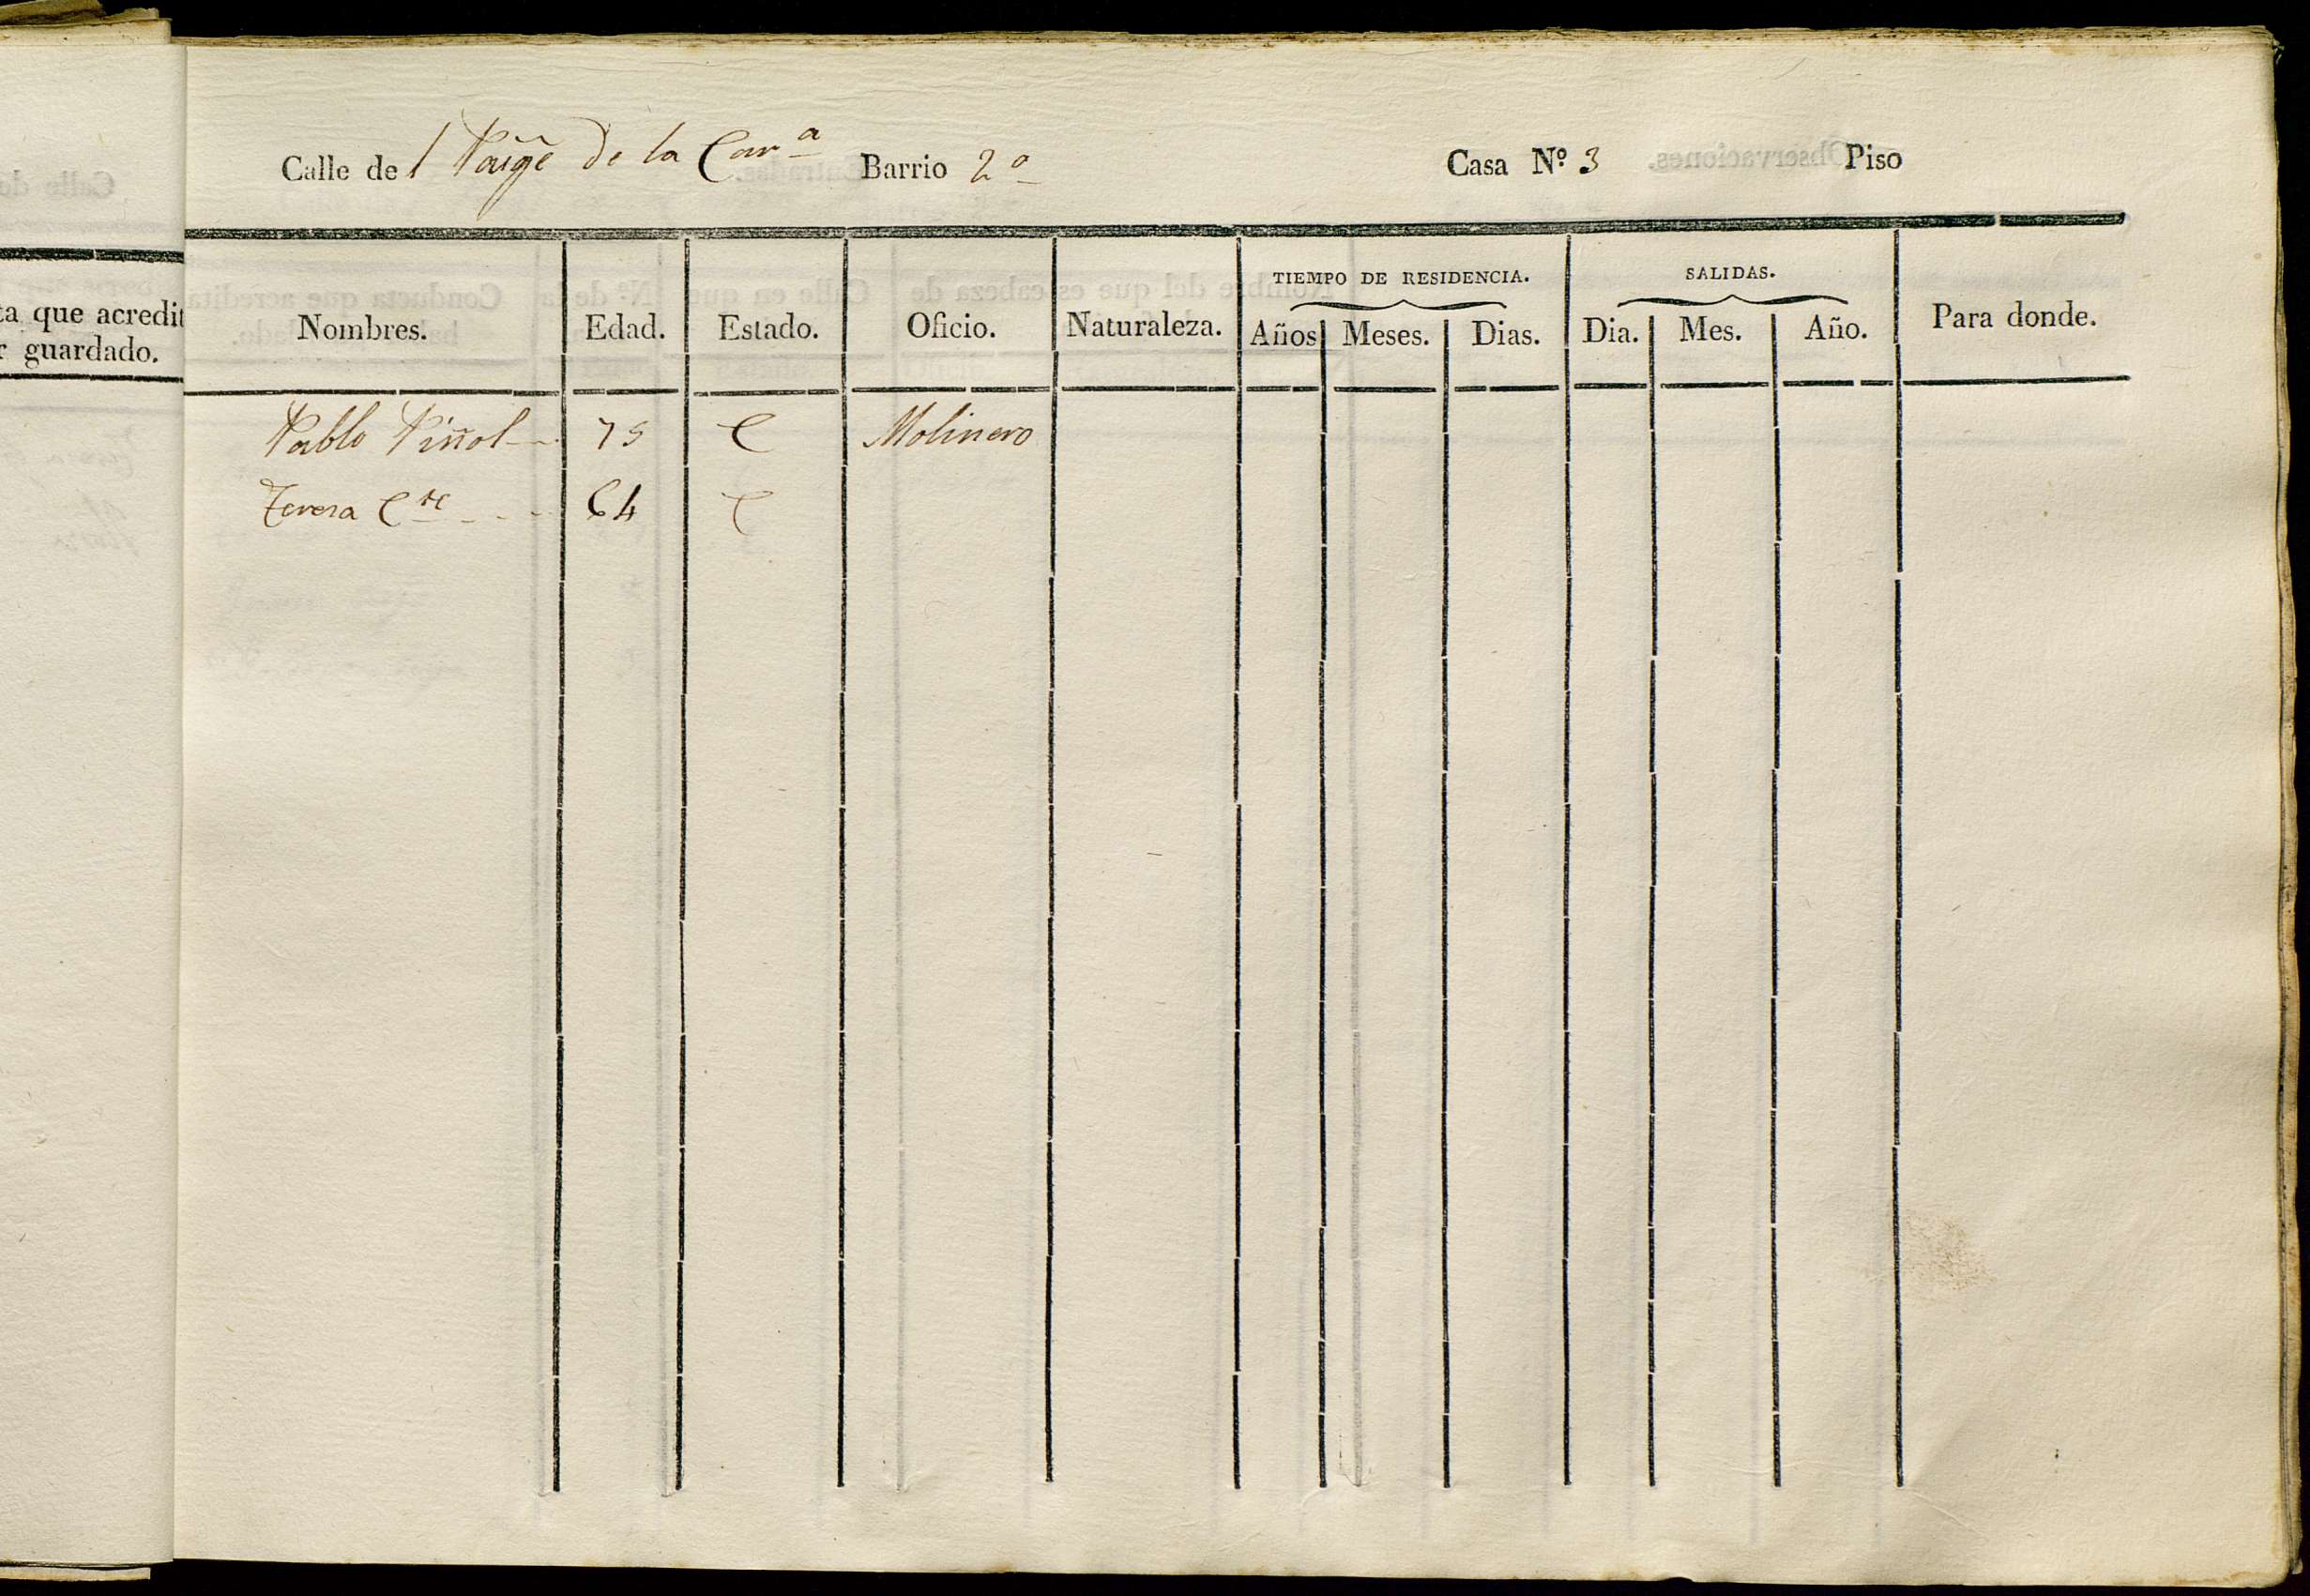 Calle del Paige de la Car.ª Barrio 2º Casa Nº 3 Piso
ta que acredit
r guardado.
Nombres. Edad. Estado. Oficio. Naturaleza. TIEMPO DE RESIDENCIA. Años Meses. Dias. SALIDAS. Dia. Mes. Año. Para donde.
Pablo Piñol 75 C Molinero
Teresa C.te 64 C